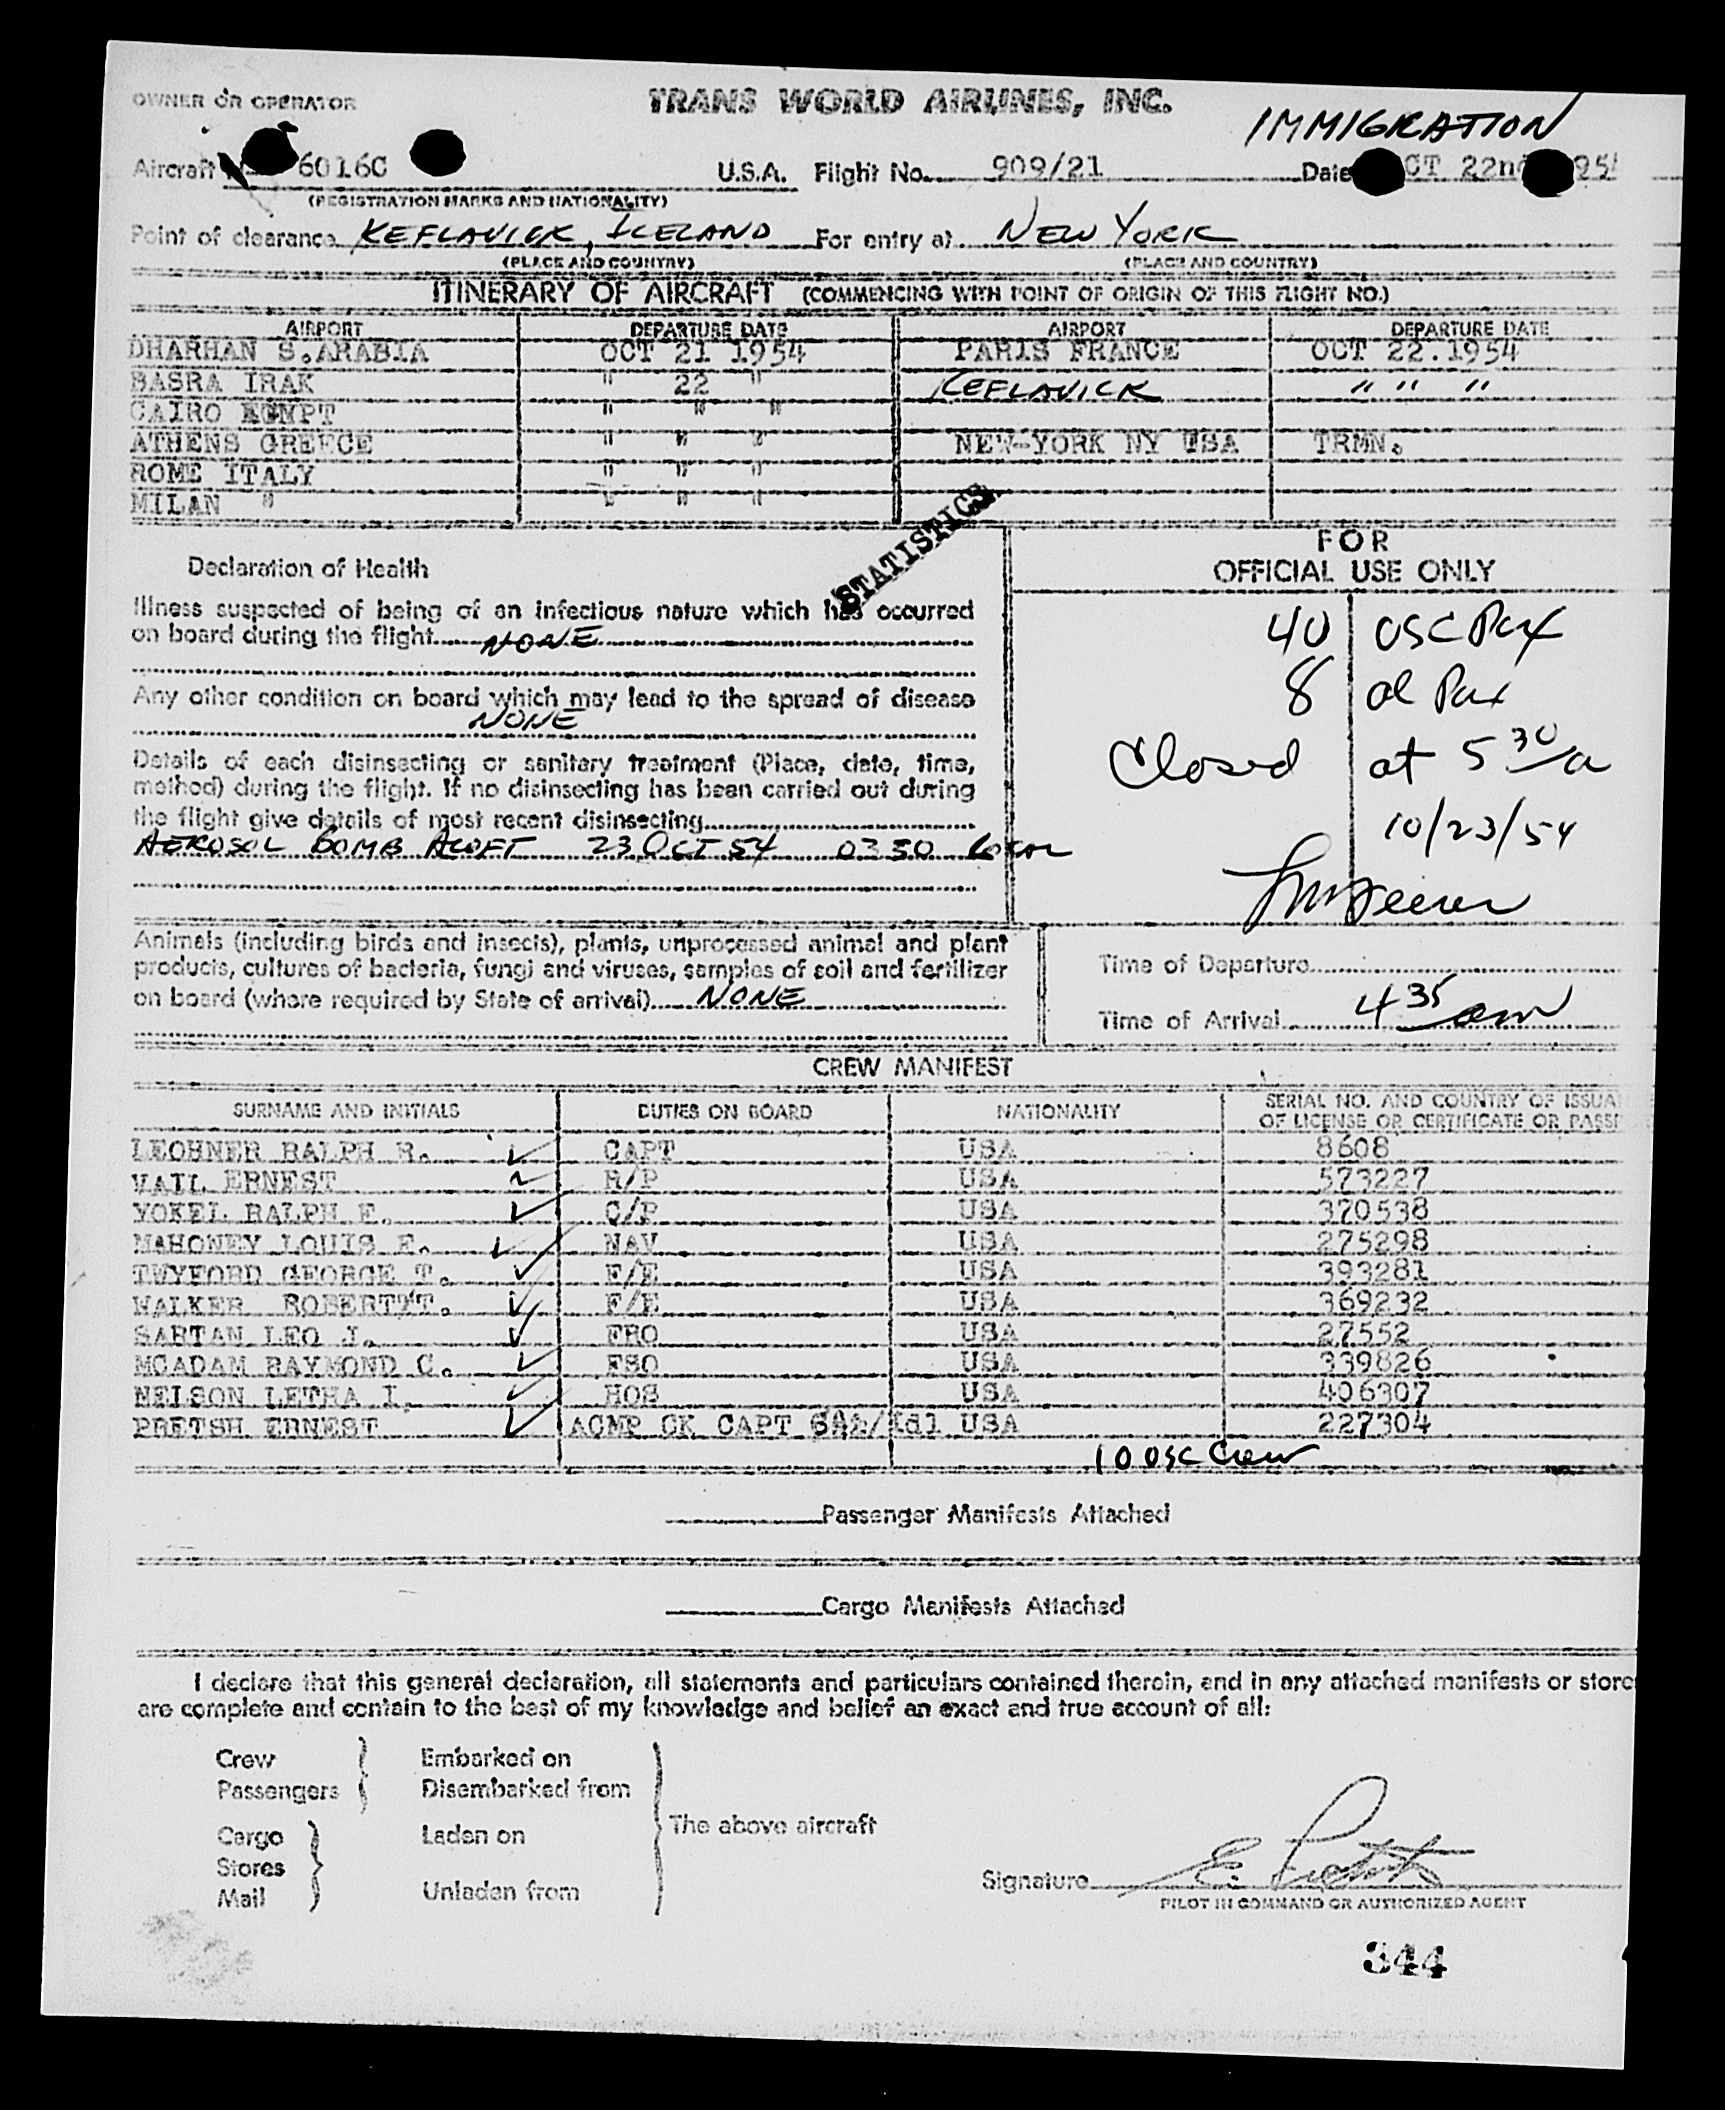 OWNER OR OPERATOR
TRANS WORLD AIRLINES, INC.
IMMIGRATION
Aircraft 6016C U.S.A. Flight No. 909/21 Date CT 22nd 195
(REGISTRATION MARKS AND NATIONALITY)
Point of clearance KEFLAVICK, ICELAND For entry at NEW YORK
(PLACE AND COUNTRY) (PLACE AND COUNTRY)
ITINERARY OF AIRCRAFT (COMMENCING WITH POINT OF ORIGIN OF THIS FLIGHT NO.)
AIRPORT DEPARTURE DATE AIRPORT DEPARTURE DATE
DHARHAN S.ARABIA OCT 21 1954 PARIS FRANCE OCT 22.1954
BASRA IRAK " 22 " KEFLAVICK " " "
CAIRO EGYPT " " "
ATHENS GREECE " " " NEW-YORK NY USA TRMN.
ROME ITALY " " "
MILAN " " " "
STATISTICS
FOR
OFFICIAL USE ONLY
Declaration of Health
Illness suspected of being of an infectious nature which has occurred
on board during the flight NONE
Any other condition on board which may lead to the spread of disease
NONE
Details of each disinsecting or sanitary treatment (Place, date, time,
method) during the flight. If no disinsecting has been carried out during
the flight give details of most recent disinsecting
AEROSOL BOMB ALOFT 23 OCT 54 0350 LOCAL
40 USC Pax
8 al Pax
Closed at 5 30/a
10/23/54
Animals (including birds and insects), plants, unprocessed animal and plant
products, cultures of bacteria, fungi and viruses, samples of soil and fertilizer
on board (where required by State of arrival) NONE
Time of Departure
Time of Arrival 4 35 am
CREW MANIFEST
SURNAME AND INITIALS DUTIES ON BOARD NATIONALITY SERIAL NO. AND COUNTRY OF ISSUA
OF LICENSE OR CERTIFICATE OR PASSP
LEOHNER RALPH R. CAPT USA 8608
VAIL ERNEST R/P USA 573227
YOKEL RALPH E. C/P USA 370538
MAHONEY LOUIS E. NAV USA 275298
TWYFORD GEORGE T. F/E USA 393281
WALKER ROBERT T. F/E USA 369232
SARTAN LEO J. FRO USA 27552
MCADAM RAYMOND C. FSO USA 339826
NELSON LETHA I. HOS USA 406307
PRETSH ERNEST ACMP CK CAPT USA 227304
10 USC Crew
Passenger Manifests Attached
Cargo Manifests Attached
I declare that this general declaration, all statements and particulars contained therein, and in any attached manifests or store
are complete and contain to the best of my knowledge and belief an exact and true account of all:
Crew Embarked on
Passengers Disembarked from
The above aircraft
Cargo Laden on
Stores
Mail Unladen from
Signature
PILOT IN COMMAND OR AUTHORIZED AGENT
344